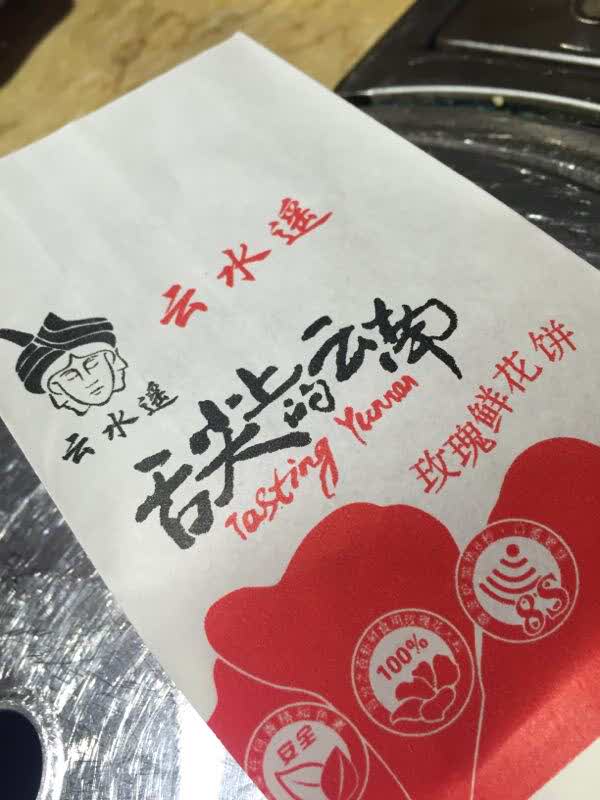 云水遥
云水遥
舌尖上的云南
Tasting Yunnan
玫瑰鲜花饼
8S
100%
安全